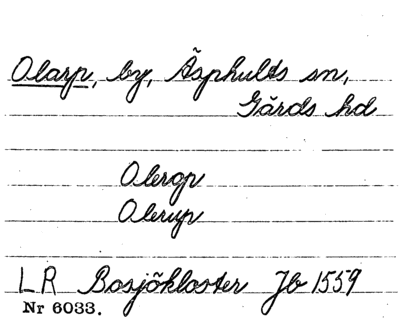 Olarp, by, Äsphults sn,
Gärds hd
Olerop
Olerup
LR Bosjökloster Jb 1559
Nr 6033.